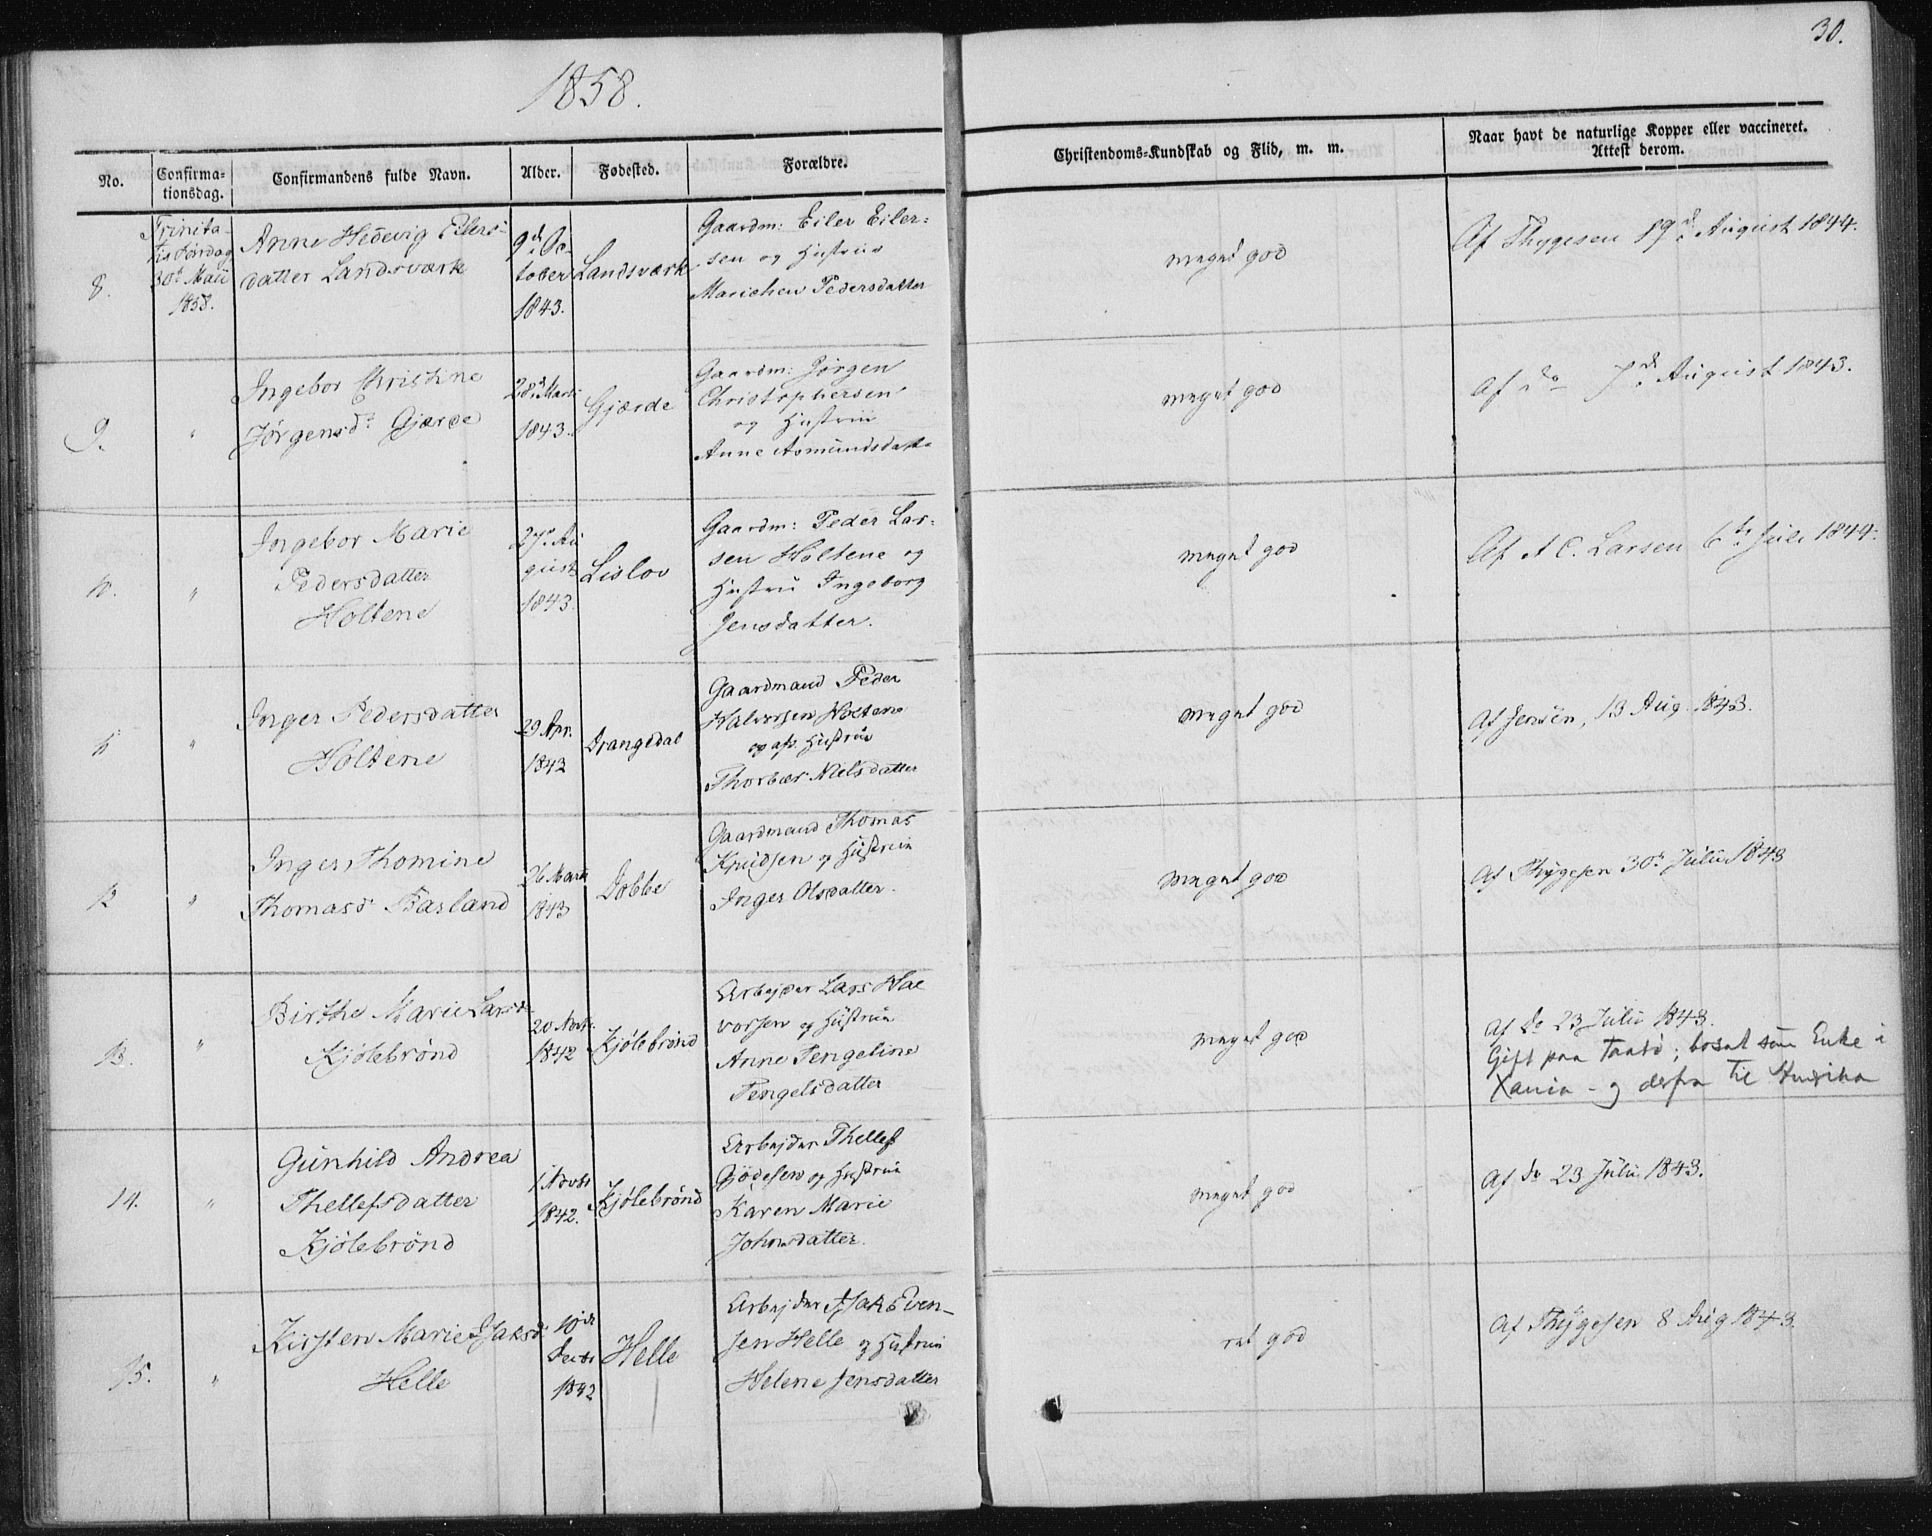 30.
1858.
No.
Confirma-
tionsdag.
Confirmandens fulde Navn.
Alder.
Fødested.
Forældre.
Christendoms-Kundskab og Flid, m. m.
Naar havt de naturlige Kopper eller vaccineret.
Attest derom.
8.
Trinita-
tis Søndag
30t Maii
1858.
Anne Hedevig Eilers-
datter Landsværk
9d Oc-
tober
1843.
Landsværk
Gaardm: Eiler Eiler-
sen og Hustrue
Marichen Pedersdatter
meget god
Af Thygesen 19d August 1844.
9.
"
Ingebor Christine
Jørgensd. Gjærde
28d Marti
1843.
Gjærde
Gaardm: Jørgen
Christophersen
og Hustrue
Anne Asmundsdatter
meget god
Af do 7d August 1843.
10.
"
Ingebor Marie
Pedersdatter
Holtene
27d Au
gust
1843.
Lislov
Gaardm: Peder Lar-
sen Holtene og
Hustru Ingeborg
Jensdatter.
meget god
Af A C. Larsen 6te Juli 1844.
11
"
Inger Pedersdatter
Holtene
29 Apr.
1843
Drangedal
Gaardmand Peder
Halvorsen Holtene
og afs. Hustrue
Thorbær Nielsdatter
meget god
Af Jensen, 13 Aug. 1843.
12
"
Inger Thomine
Thomasd. Farland
26 Marts
1843
Dobbe
Gaardmand Thomas
Knudsen og Hustrue
Inger Olsdatter.
meget god
Af Thygesen 30t Julii 1843
13.
"
Birthe Marie Larsd.
Kjølebrønd
20 Novbr.
1842
Kjølebrønd
Arbejder Lars Hal
vorsen og Hustrue
Anne Tengeline
Tengelsdatter
meget god
Af do 23 Julii 1843.
Gift paa Taatø; bosat som Enke i
Xania - og derfra til Amerika
14.
"
Gunhild Andrea
Thellefsdatter
Kjølebrønd
1 Novbr
1842.
Kjølebrønd
Arbejder Thellef
og Hustrue
Karen Marie
Johnsdatter.
meget god
Af do 23 Julii 1843.
15.
"
Kirsten Marie Isaksd.
Helle
10de
Decbr
1842
Helle
Arbejder Isak Even-
sen Helle og Hustrue
Helene Jensdatter
ret god
Af Thygesen 8 Aug 1843.